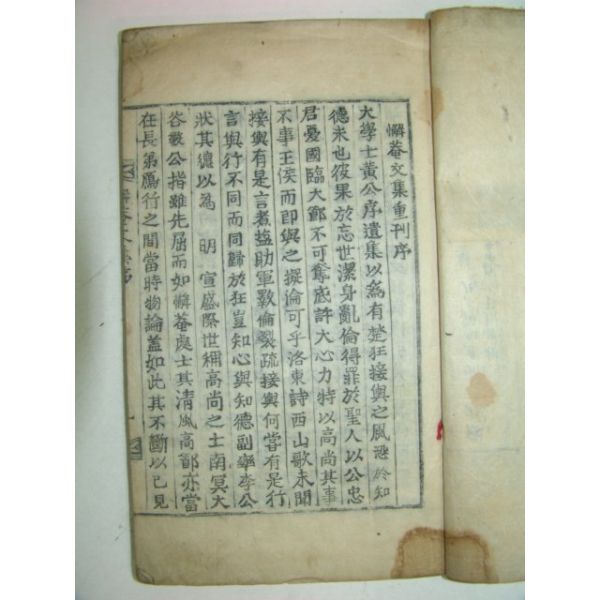 懶菴文集重刊序
大學士黃公序遺集以爲有楚狂接輿之風恐於知
德未也彼果於忘世潔身亂倫得罪於聖人以公忠
君憂國臨大節不可奪底許大心力特以高尚其事
不事王侯而即與之擬倫可乎洛東詩西山歌未聞
接輿有是言者益助軍敦倫裂疏接輿何嘗有是行
言與行不同而同歸於狂豈知心與知德副學李公
狀其德以爲 明 宣盛際世稱高尚之士南冥大
谷數公指雖先屈而如懶菴處士其清風高節亦當
在長第鴈行之間當時物論蓋如此其不斷以已見